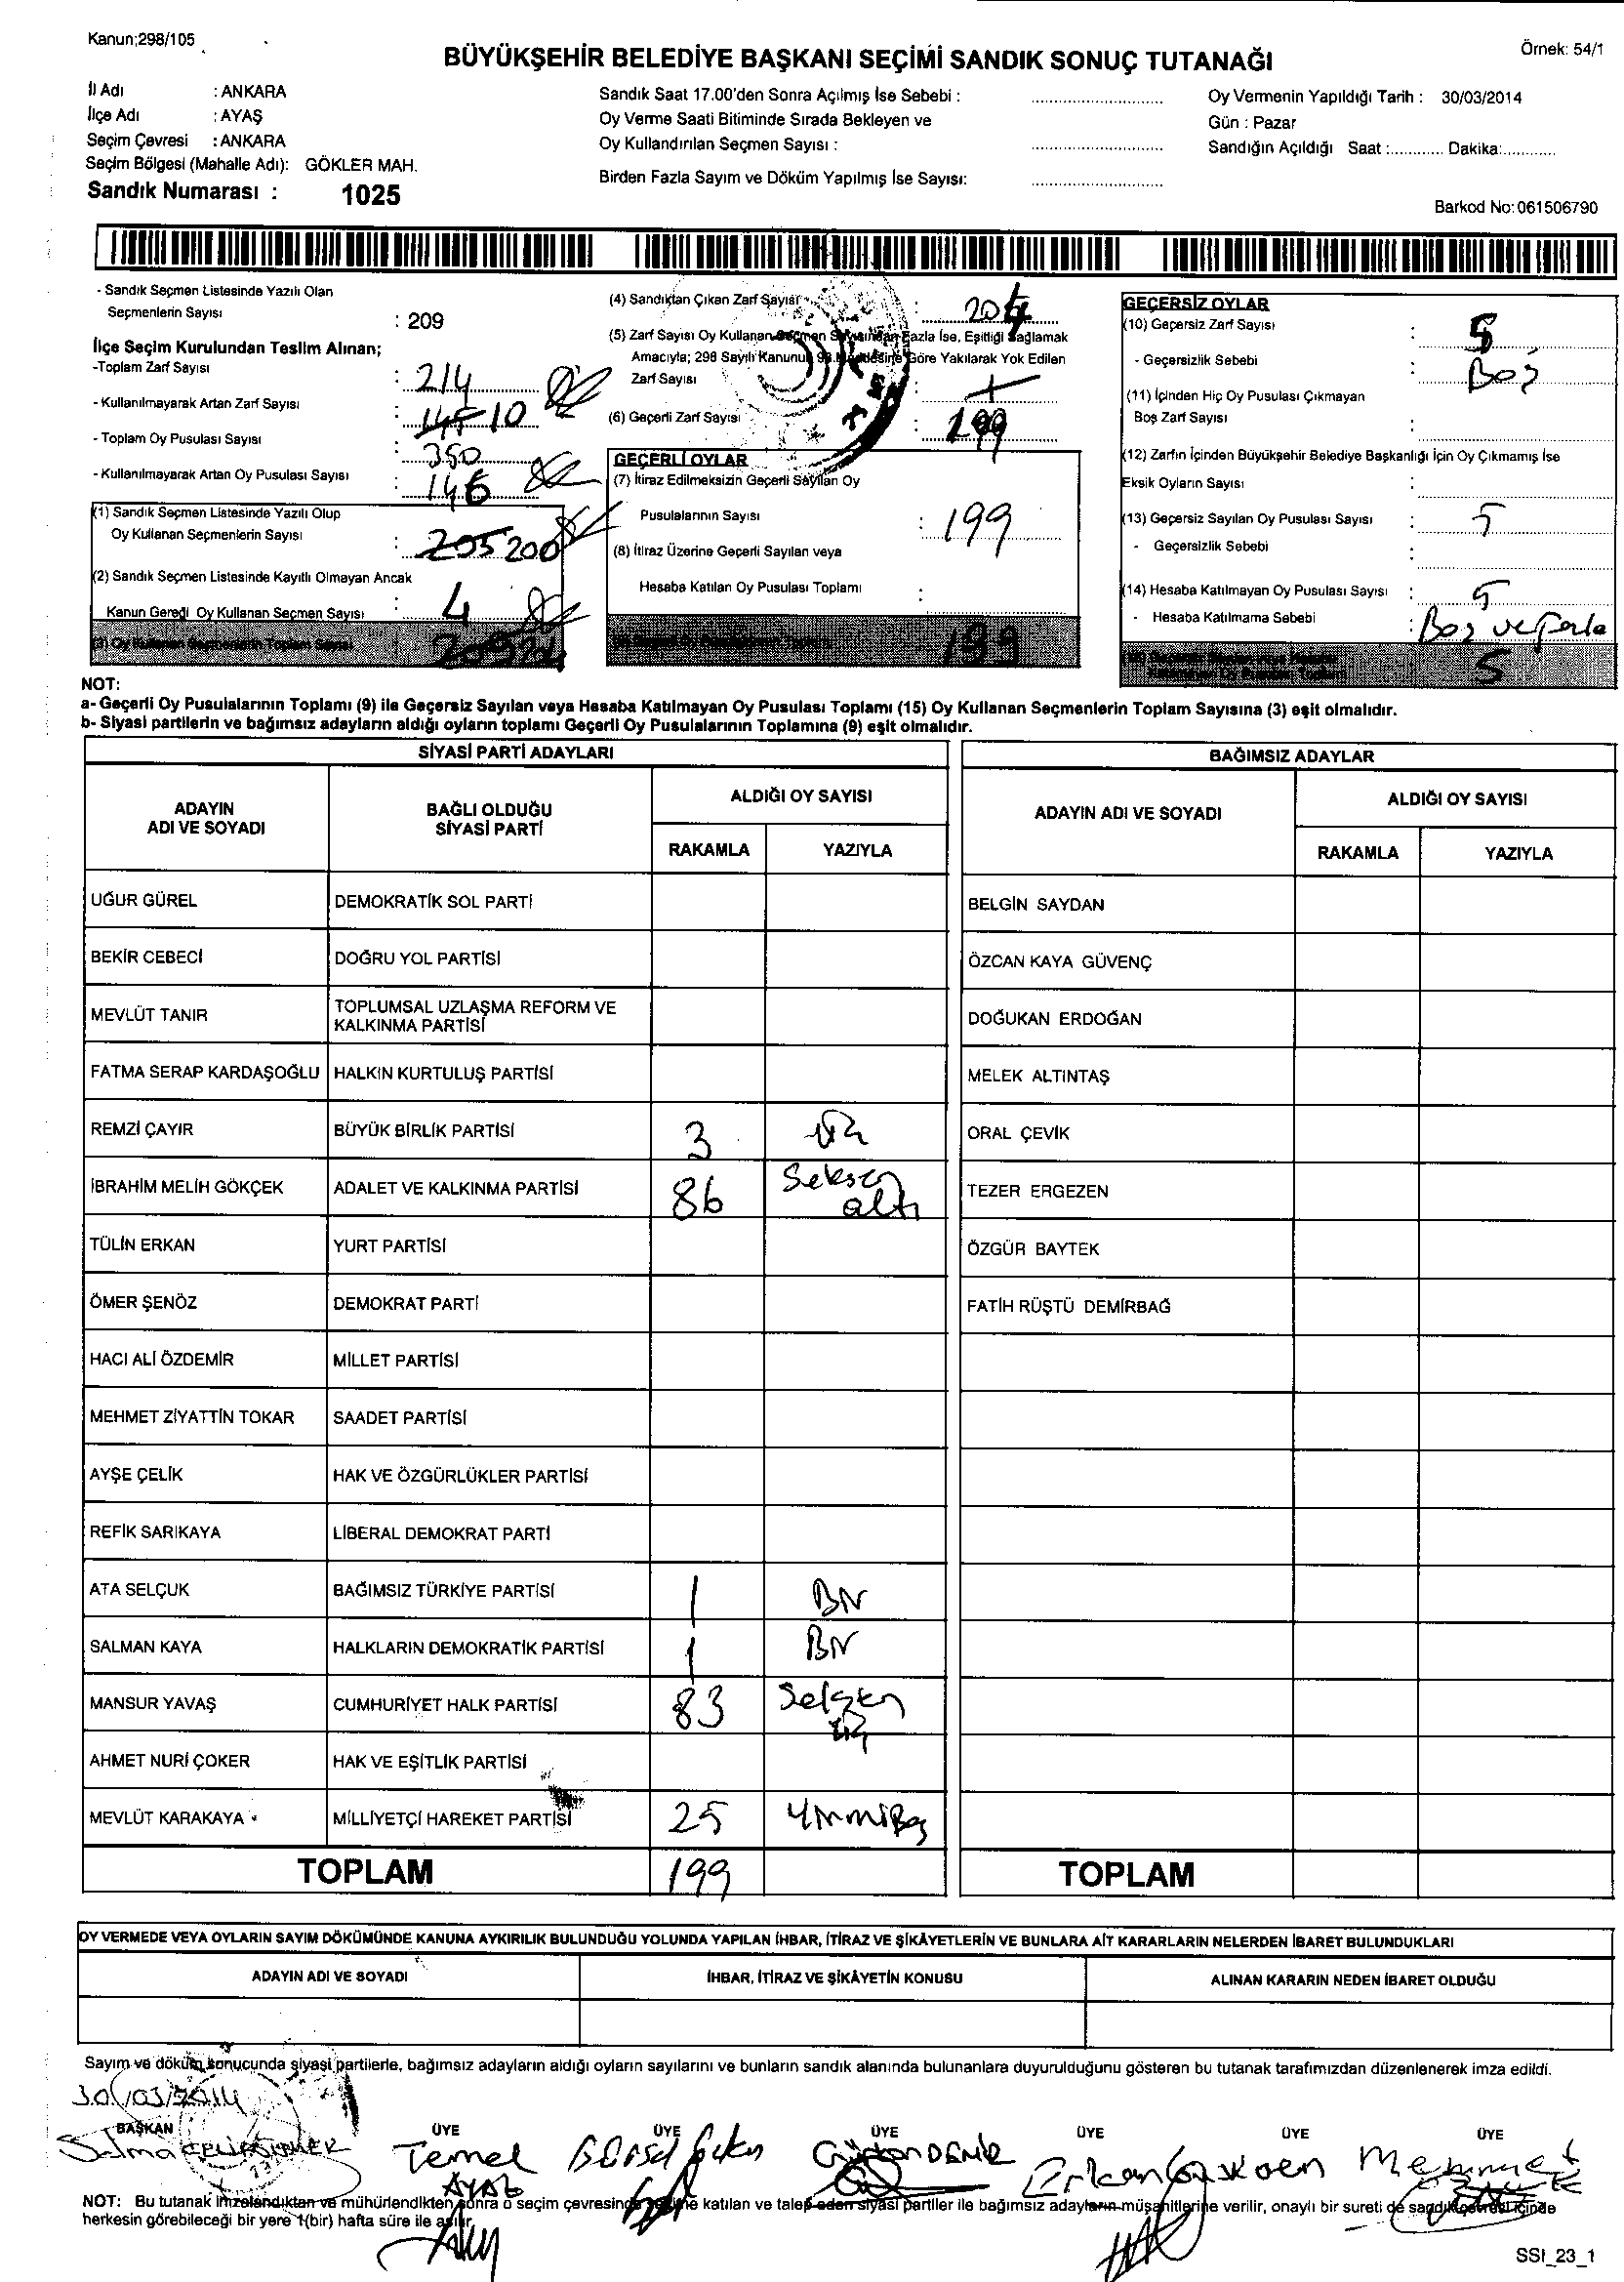 Kanun;298/105
Örnek: 54/1
BÜYÜKŞEHİR BELEDİYE BAŞKANI SEÇİMİ SANDIK SONUÇ TUTANAĞI
İl Adı : ANKARA
İlçe Adı : AYAŞ
Seçim Çevresi : ANKARA
Seçim Bölgesi (Mahalle Adı): GÖKLER MAH.
Sandık Numarası : 1025
Sandık Saat 17.00'den Sonra Açılmış İse Sebebi :
Oy Verme Saati Bitiminde Sırada Bekleyen ve
Oy Kullandırılan Seçmen Sayısı :
Birden Fazla Sayım ve Döküm Yapılmış İse Sayısı:
Oy Vermenin Yapıldığı Tarih : 30/03/2014
Gün : Pazar
Sandığın Açıldığı Saat :........... Dakika:...........
Barkod No: 061506790
- Sandık Seçmen Listesinde Yazılı Olan
Seçmenlerin Sayısı : 209
İlçe Seçim Kurulundan Teslim Alınan;
-Toplam Zarf Sayısı : 214
- Kullanılmayarak Artan Zarf Sayısı : 10
- Toplam Oy Pusulası Sayısı : 350
- Kullanılmayarak Artan Oy Pusulası Sayısı : 146
(1) Sandık Seçmen Listesinde Yazılı Olup
Oy Kullanan Seçmenlerin Sayısı : 205 200
(2) Sandık Seçmen Listesinde Kayıtlı Olmayan Ancak
Kanun Gereği Oy Kullanan Seçmen Sayısı : 4
(3) Oy Kullanan Seçmenlerin Toplam Sayısı
(4) Sandıktan Çıkan Zarf Sayısı : 204
(5) Zarf Sayısı Oy Kullanan Seçmen Sayısından Fazla İse, Eşitliği Sağlamak
Amacıyla; 298 Sayılı Kanunun 98.Maddesine Göre Yakılarak Yok Edilen
Zarf Sayısı :
(6) Geçerli Zarf Sayısı : 199
GEÇERLİ OYLAR
(7) İtiraz Edilmeksizin Geçerli Sayılan Oy
Pusulalarının Sayısı : 199
(8) İtiraz Üzerine Geçerli Sayılan veya
Hesaba Katılan Oy Pusulası Toplamı :
199
GEÇERSİZ OYLAR
(10) Geçersiz Zarf Sayısı : 5
- Geçersizlik Sebebi : Boş
(11) İçinden Hiç Oy Pusulası Çıkmayan
Boş Zarf Sayısı :
(12) Zarfın İçinden Büyükşehir Belediye Başkanlığı İçin Oy Çıkmamış İse
Eksik Oyların Sayısı :
(13) Geçersiz Sayılan Oy Pusulası Sayısı : 5
- Geçersizlik Sebebi :
(14) Hesaba Katılmayan Oy Pusulası Sayısı : 5
- Hesaba Katılmama Sebebi : Boş ve fazla
5
NOT:
a- Geçerli Oy Pusulalarının Toplamı (9) ile Geçersiz Sayılan veya Hesaba Katılmayan Oy Pusulası Toplamı (15) Oy Kullanan Seçmenlerin Toplam Sayısına (3) eşit olmalıdır.
b- Siyasi partilerin ve bağımsız adayların aldığı oyların toplamı Geçerli Oy Pusulalarının Toplamına (9) eşit olmalıdır.
SİYASİ PARTİ ADAYLARI
ADAYIN ADI VE SOYADI
BAĞLI OLDUĞU SİYASİ PARTİ
ALDIĞI OY SAYISI
RAKAMLA YAZIYLA
UĞUR GÜREL DEMOKRATİK SOL PARTİ
BEKİR CEBECİ DOĞRU YOL PARTİSİ
MEVLÜT TANIR TOPLUMSAL UZLAŞMA REFORM VE KALKINMA PARTİSİ
FATMA SERAP KARDAŞOĞLU HALKIN KURTULUŞ PARTİSİ
REMZİ ÇAYIR BÜYÜK BİRLİK PARTİSİ 3 üç
İBRAHİM MELİH GÖKÇEK ADALET VE KALKINMA PARTİSİ 86 Seksen altı
TÜLİN ERKAN YURT PARTİSİ
ÖMER ŞENÖZ DEMOKRAT PARTİ
HACI ALİ ÖZDEMİR MİLLET PARTİSİ
MEHMET ZİYATTİN TOKAR SAADET PARTİSİ
AYŞE ÇELİK HAK VE ÖZGÜRLÜKLER PARTİSİ
REFİK SARIKAYA LİBERAL DEMOKRAT PARTİ
ATA SELÇUK BAĞIMSIZ TÜRKİYE PARTİSİ 1 BİR
SALMAN KAYA HALKLARIN DEMOKRATİK PARTİSİ 1 BİR
MANSUR YAVAŞ CUMHURİYET HALK PARTİSİ 83 Seksen üç
AHMET NURİ ÇOKER HAK VE EŞİTLİK PARTİSİ
MEVLÜT KARAKAYA MİLLİYETÇİ HAREKET PARTİSİ 25 Yirmi Beş
TOPLAM 199
BAĞIMSIZ ADAYLAR
ADAYIN ADI VE SOYADI
ALDIĞI OY SAYISI
RAKAMLA YAZIYLA
BELGİN SAYDAN
ÖZCAN KAYA GÜVENÇ
DOĞUKAN ERDOĞAN
MELEK ALTINTAŞ
ORAL ÇEVİK
TEZER ERGEZEN
ÖZGÜR BAYTEK
FATİH RÜŞTÜ DEMİRBAĞ
TOPLAM
OY VERMEDE VEYA OYLARIN SAYIM DÖKÜMÜNDE KANUNA AYKIRILIK BULUNDUĞU YOLUNDA YAPILAN İHBAR, İTİRAZ VE ŞİKÂYETLERİN VE BUNLARA AİT KARARLARIN NELERDEN İBARET BULUNDUKLARI
ADAYIN ADI VE SOYADI İHBAR, İTİRAZ VE ŞİKÂYETİN KONUSU ALINAN KARARIN NEDEN İBARET OLDUĞU
Sayım ve döküm sonucunda siyasi partilerle, bağımsız adayların aldığı oyların sayılarını ve bunların sandık alanında bulunanlara duyurulduğunu gösteren bu tutanak tarafımızdan düzenlenerek imza edildi.
30/03/2014
BAŞKAN ÜYE ÜYE ÜYE ÜYE ÜYE ÜYE
Temel Mehmet
NOT: Bu tutanak imzalandıktan ve mühürlendikten sonra o seçim çevresinde seçime katılan ve talep eden siyasi partiler ile bağımsız adayların müşahitlerine verilir, onaylı bir sureti de sandık çevresi içinde
herkesin görebileceği bir yere 1(bir) hafta süre ile asılır.
SSI_23_1